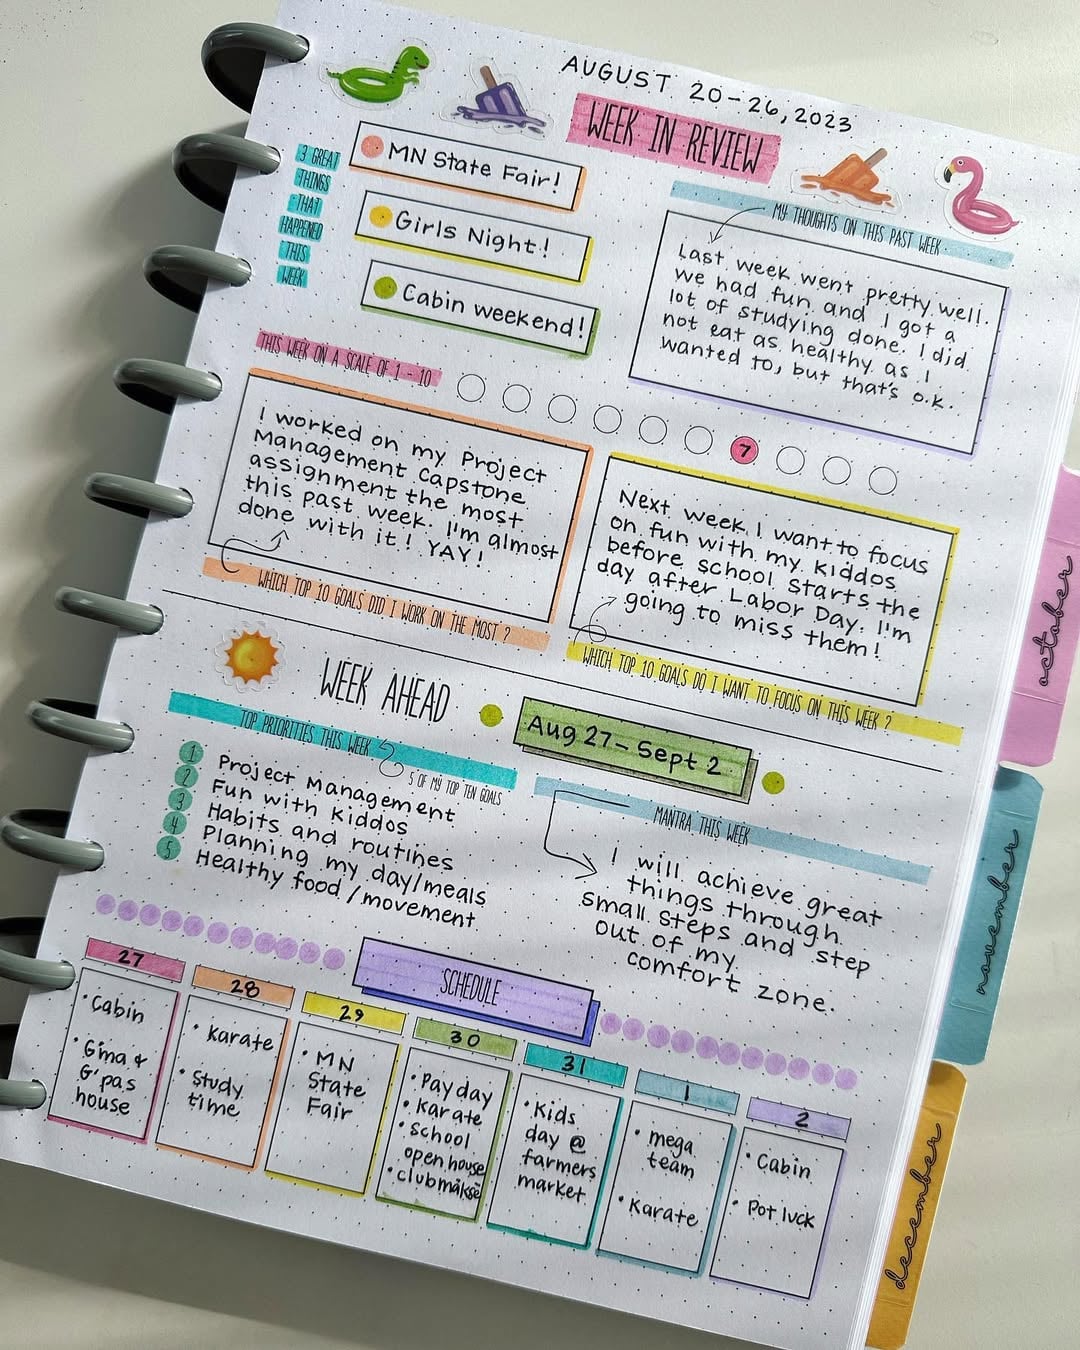 AUGUST 20-26, 2023
WEEK IN REVIEW
3 GREAT
THINGS
THAT
HAPPENED
THIS
WEEK
MN State Fair!
Girls Night!
Cabin weekend!
MY THOUGHTS ON THIS PAST WEEK
Last week went pretty well.
we had fun and I got a
lot of studying done. I did
not eat as healthy as I
wanted to, but that's o.k.
THIS WEEK ON A SCALE OF 1 - 10
7
I worked on my Project
Management Capstone
assignment the most
this past week. I'm almost
done with it! YAY!
WHICH TOP 10 GOALS DID I WORK ON THE MOST ?
Next week I want to focus
on fun with my kiddos
before school starts the
day after Labor Day. I'm
going to miss them!
WHICH TOP 10 GOALS DO I WANT TO FOCUS ON THIS WEEK ?
WEEK AHEAD
Aug 27 - Sept 2
TOP PRIORITIES THIS WEEK
5 OF MY TOP TEN GOALS
1 Project Management
2 Fun with kiddos
3 Habits and routines
4 Planning my day/meals
5 Healthy food/movement
MANTRA THIS WEEK
I will achieve great
things through
small steps and step
out of my
comfort zone.
SCHEDULE
27
• Cabin
• G'ma &
G'pas
house
28
• Karate
• Study
time
29
• MN
State
Fair
30
• Pay day
• Karate
• School
open house
31
• Kids
day @
farmers
market
1
• mega
team
• Karate
2
• Cabin
• Pot luck
october
november
december